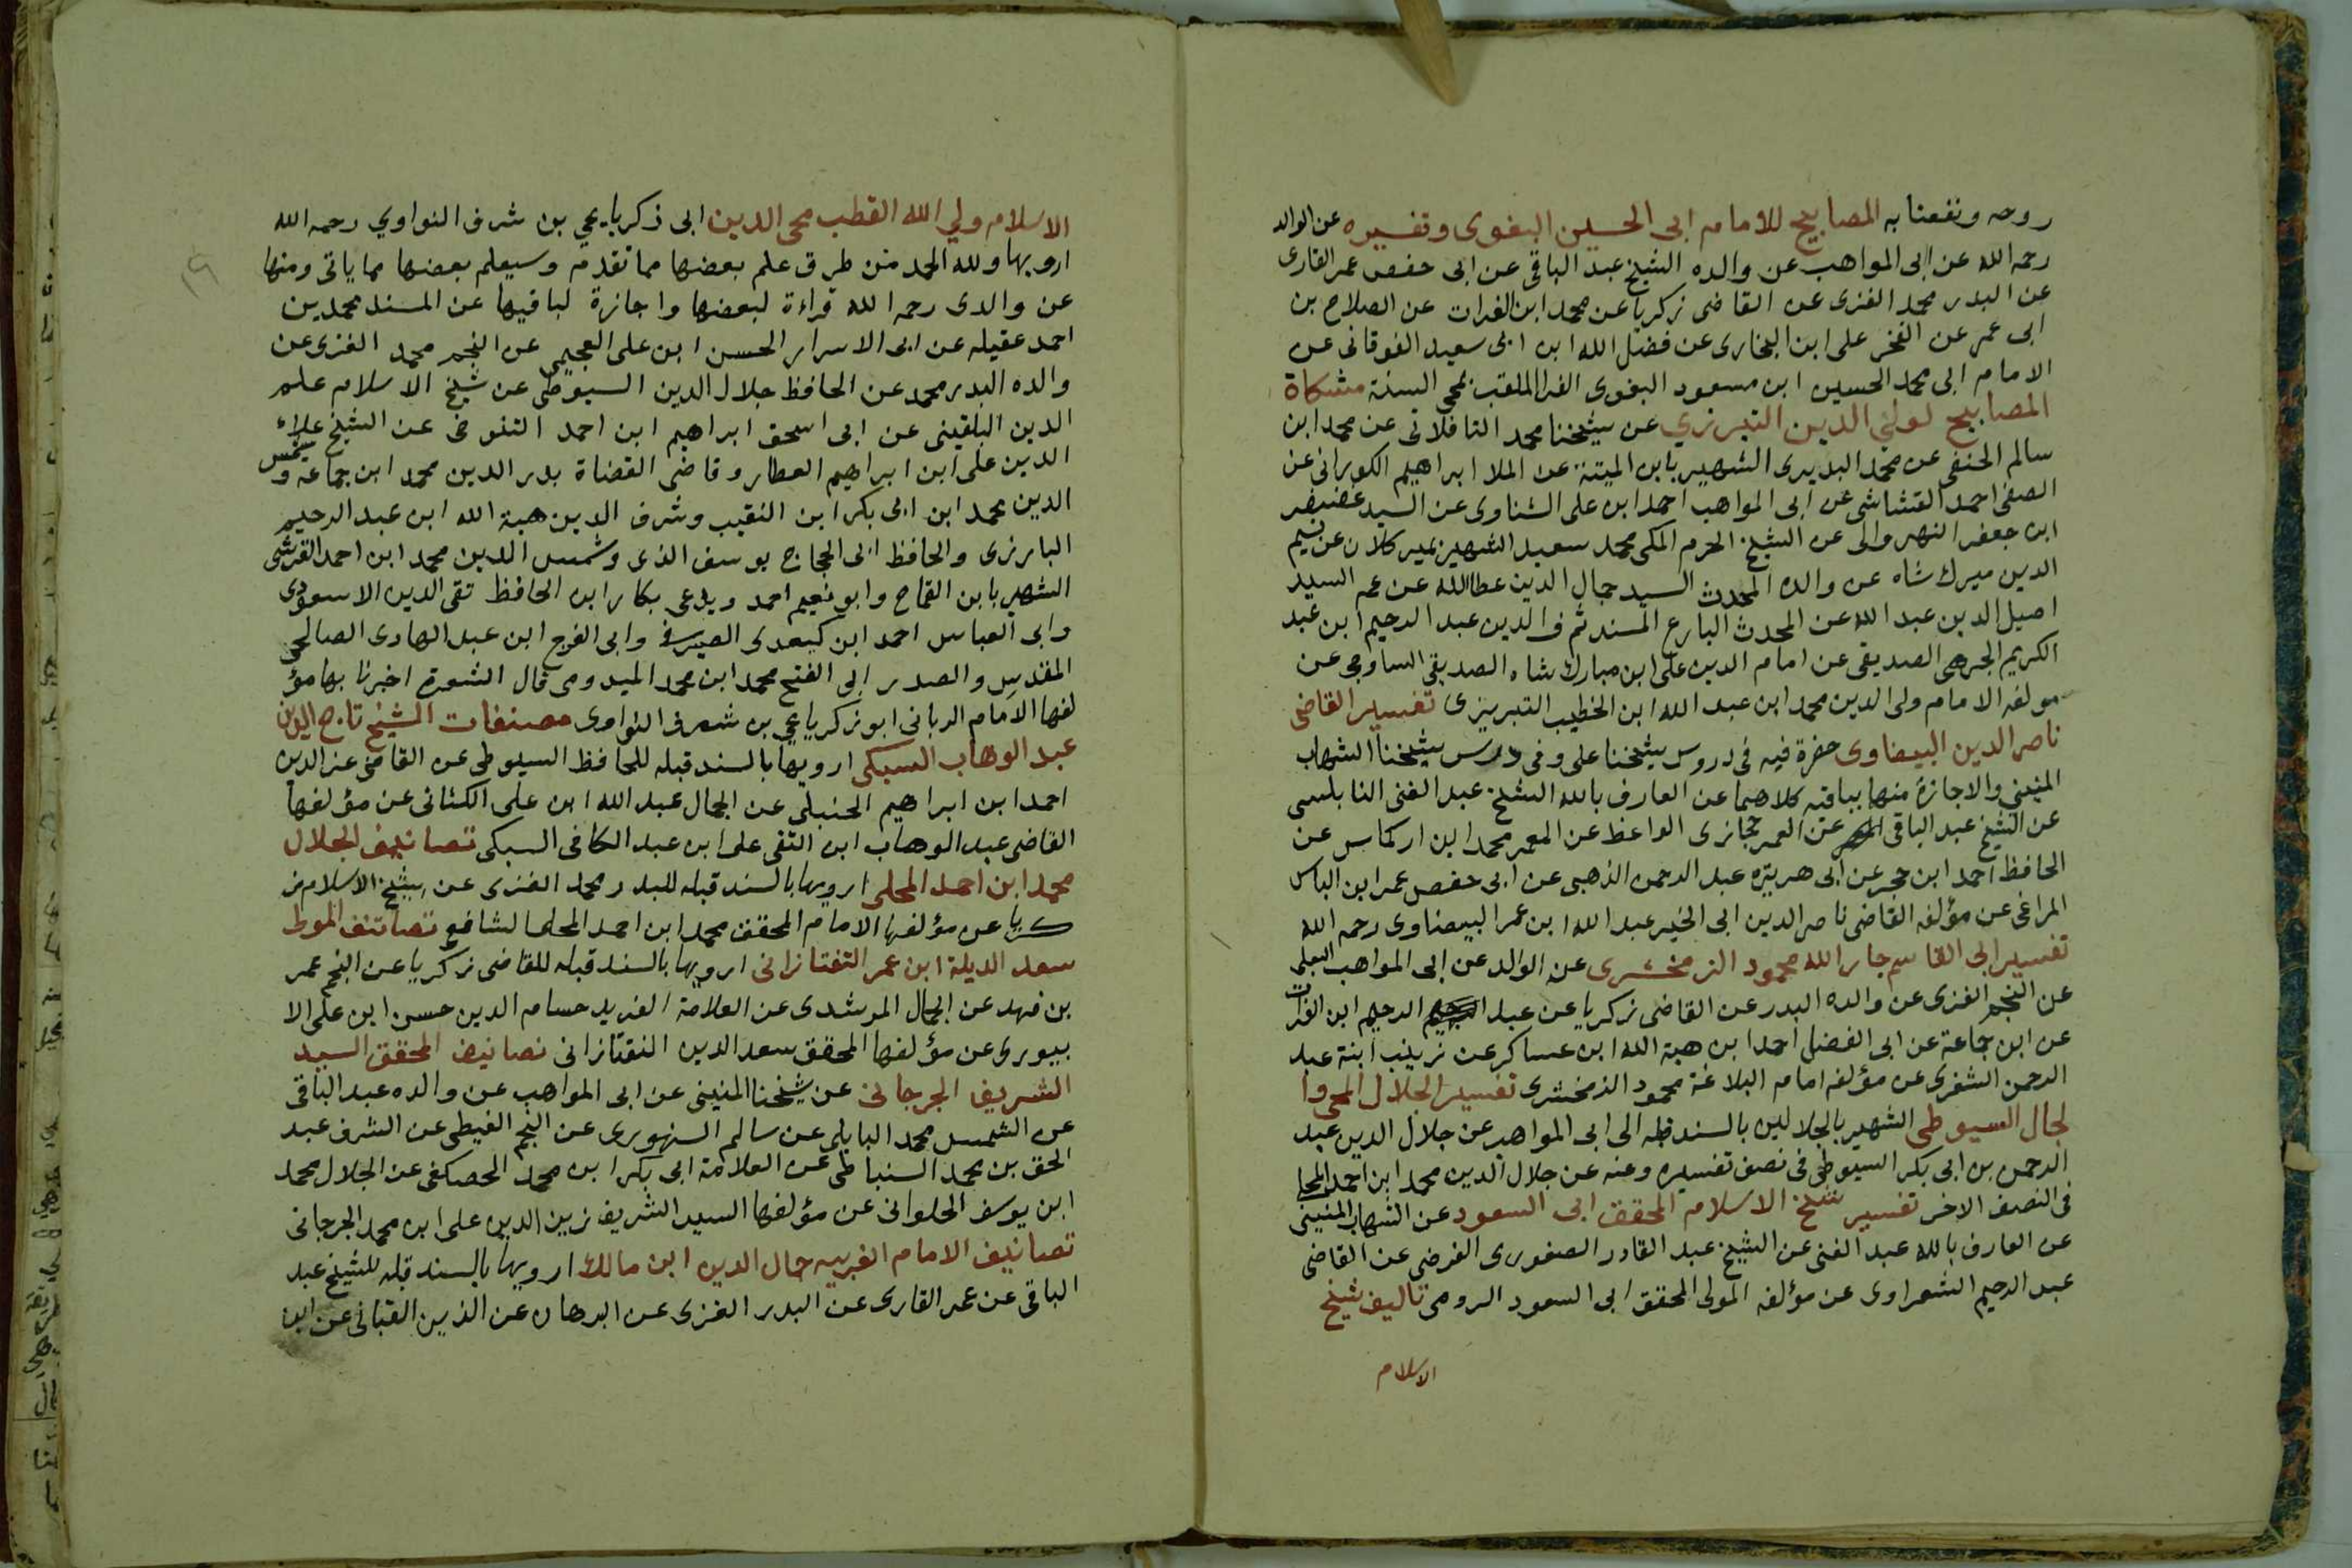 روحه ونفعنا به المصابيح للامام ابى الحسين البغوى وتفسيره عن الوالد
رحمه الله عن ابى المواهب عن والده الشيخ عبد الباقى عن ابى حفص عمر القارى
عن البدر محمد الغزى عن القاضى زكريا عن محمد ابن الفرات عن الصلاح بن
ابى عمر عن الفخر على ابن البخارى عن فضل الله ابن ابى سعيد الفوقانى عن
الامام ابى محمد الحسين ابن مسعود البغوى الفرا الملقب بمحى السنة مشكاة
المصابيح لولي الدين التبرزي عن شيخنا محمد التافلاتى عن محمد ابن
سالم الحنفى عن محمد البديرى الشهير بابن الميتة عن الملا ابراهيم الكورانى عن
الصفى احمد القشاشى عن ابى المواهب احمد ابن على الشناوى عن السيد غضنفر
ابن جعفر النهروالى عن الشيخ الحرم المكى محمد سعيد الشهير بمير كلان عن نسيم
الدين ميرك شاه عن والده المحدث السيد جمال الدين عطا الله عن عمه السيد
اصيل الدين عبد الله عن المحدث البارع المسند شرف الدين عبد الرحيم ابن عبد
الكريم الجرهى الصديقى عن امام الدين على ابن مبارك شاه الصديقى الساوجى عن
مولفه الامام ولى الدين محمد ابن عبد الله ابن الخطيب التبريزى تفسير القاضى
ناصر الدين البيضاوى حضرة فيه فى دروس شيخنا على وفى درس شيخنا الشهاب
المنينى والاجازة منهما بباقيه كلاهما عن العارف بالله الشيخ عبد الغنى النابلسى
عن الشيخ عبد الباقى عن المعمر حجازى الواعظ عن المعمر محمد ابن اركماس عن
الحافظ احمد ابن حجر عن ابى هريرة عبد الرحمن الذهبى عن ابى حفص عمر ابن الياس
المراغى عن مؤلفه القاضى ناصر الدين ابى الخير عبد الله ابن عمر البيضاوى رحمه الله
تفسير ابى القاسم جار الله محمود الزمخشرى عن الوالد عن ابى المواهب البعلى
عن النجم الغزى عن والده البدر عن القاضى زكريا عن عبد الرحيم ابن الفرات
عن ابن جماعة عن ابى الفضل احمد ابن هبة الله ابن عساكر عن زينب ابنة عبد
الرحمن الشغرى عن مؤلفه امام البلاغة محمود الزمخشرى تفسير الجلال المحى وا
لجال السيوطى الشهير بالجلالين بالسند قبله الى ابى المواهب عن جلال الدين عبد
الرحمن بن ابى بكر السيوطى فى نصف تفسيره وعنه عن جلال الدين محمد ابن احمد المحلى
فى النصف الاخر تفسير شيخ الاسلام المحقق ابى السعود عن الشهاب المنينى
عن العارف بالله عبد الغنى عن الشيخ عبد القادر الصفورى الفرضى عن القاضى
عبد الرحيم الشعراوى عن مؤلفه المولى المحقق ابى السعود الرومى تاليف شيخ
الاسلام
الاسلام ولي الله القطب محى الدين ابى زكريا يحي بن شرف النواوي رحمه الله
ارويها ولله الحمد من طرق علم بعضها مما تقدم وسيعلم بعضها مما ياتى ومنها
عن والدى رحمه الله قراءة لبعضها واجازة لباقيها عن المسند محمد بن
احمد عقيله عن ابى الاسرار الحسن ابن على العجيمى عن النجم محمد الغزى عن
والده البدر محمد عن الحافظ جلال الدين السيوطى عن شيخ الاسلام علم
الدين البلقينى عن ابى اسحق ابراهيم ابن احمد التنوخى عن الشيخ علاء
الدين على ابن ابراهيم العطار وقاضى القضاة بدر الدين محمد ابن جماعة وشمس
الدين محمد ابن ابى بكر ابن النقيب وشرف الدين هبة الله ابن عبد الرحيم
البارزى والحافظ ابى الحجاج يوسف الذى وشمس الدين محمد ابن احمد القرشى
الشهير بابن القماح وابو نعيم احمد ويدعى بكار ابن الحافظ تقى الدين الاسعودى
وابى العباس احمد ابن كيعدى الصيرفى وابى الفرج ابن عبد الهادى الصالحى
المقدسى والصدر ابى الفتح محمد ابن محمد الميدومى قال الشعرة اخبرنا بها مؤ
لفها الامام الربانى ابو زكريا يحي بن شرف النواوى مصنفات الشيخ تاج الدين
عبد الوهاب السبكى ارويها بالسند قبله للحافظ السيوطى عن القاضى عز الدين
احمد ابن ابراهيم الحنبلى عن الجمال عبد الله ابن على الكنانى عن مؤلفها
القاضى عبد الوهاب ابن التقى على ابن عبد الكافى السبكى تصانيف الجلال
محمد ابن احمد المحلى ارويها بالسند قبله للبدر محمد الغزى عن شيخ الاسلام ز
كريا عن مؤلفها الامام المحقق محمد ابن احمد المحلى الشافعى تصانيف المولى
سعد الديلة ابن عمر التفتازانى ارويها بالسند قبله للقاضى زكريا عن النجم عمر
بن فهد عن الجمال المرشدى عن العلامة الفريد حسام الدين حسن ابن على الا
بيوردى عن مؤلفها المحقق سعد الدين التفتازانى تصانيف المحقق السيد
الشريف الجرجانى عن شيخنا المنينى عن ابى المواهب عن والده عبد الباقى
عن الشمس محمد البابلى عن سالم السنهورى عن النجم الغيطى عن الشرف عبد
الحق بن محمد السنباطى عن العلامة ابى بكر ابن محمد الحصكفى عن الجلال محمد
ابن يوسف الحلوانى عن مؤلفها السيد الشريف زين الدين على ابن محمد الجرجانى
تصانيف الامام الغريبه جمال الدين ابن مالك ارويها بالسند قبله للشيخ عبد
الباقى عن عمر القارى عن البدر الغزى عن البرهان عن الذين القبانى عن ابن